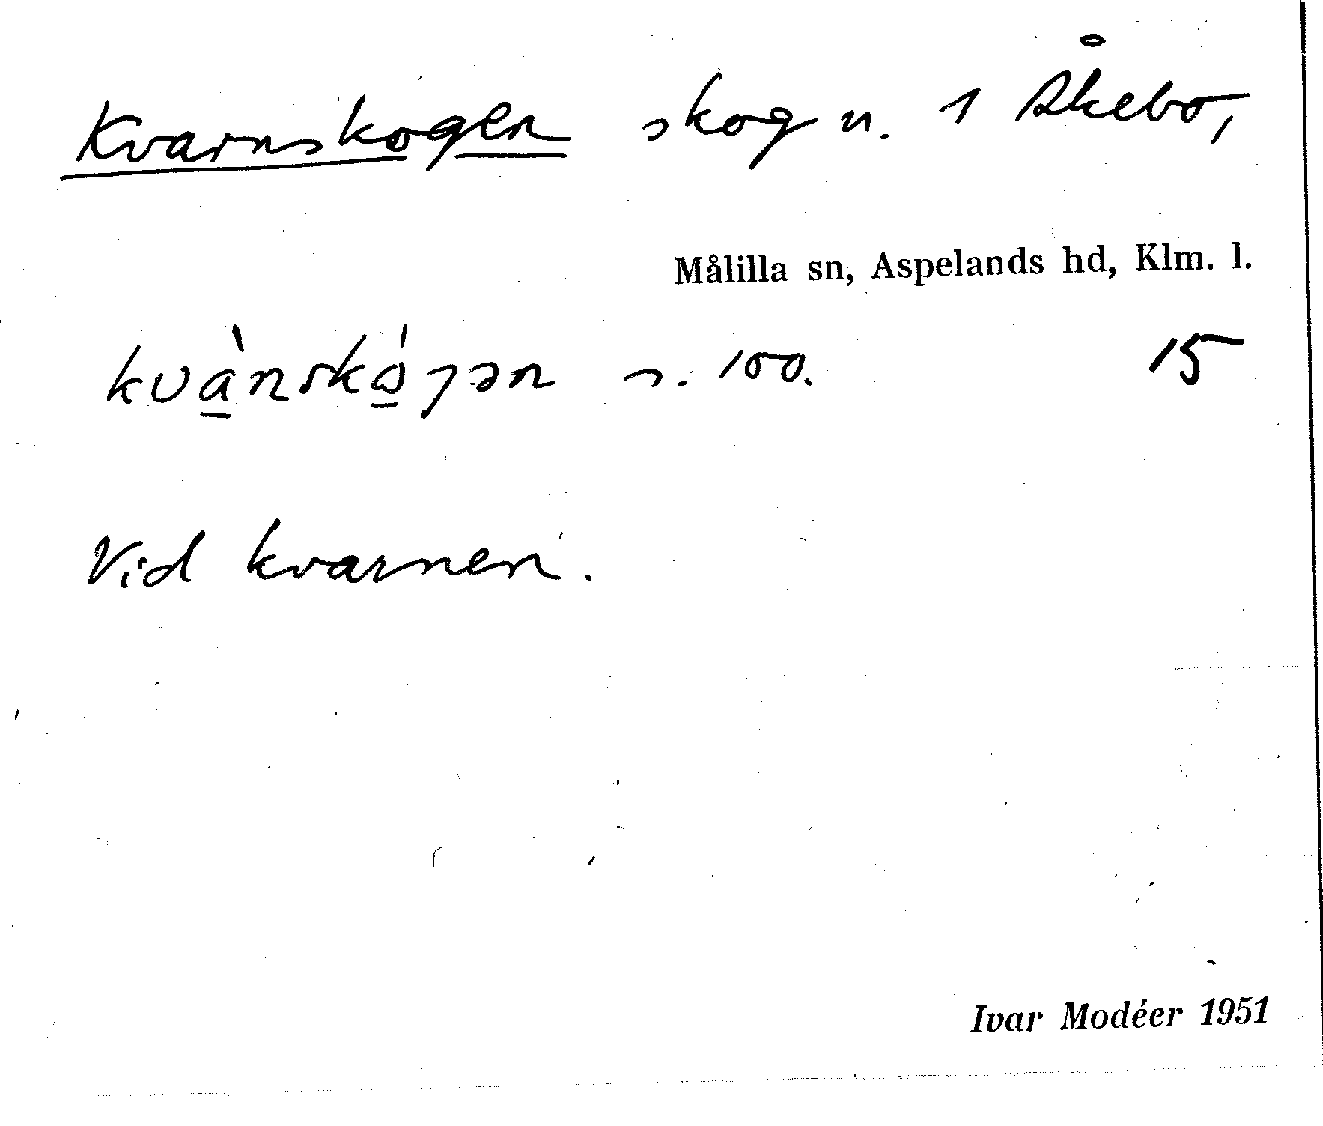 Kvarnskogen skog n. 1 Åkebo,
Målilla sn, Aspelands hd, Klm. l.
kvànskógən s. 100. 15
Vid kvarnen.
Ivar Modéer 1951